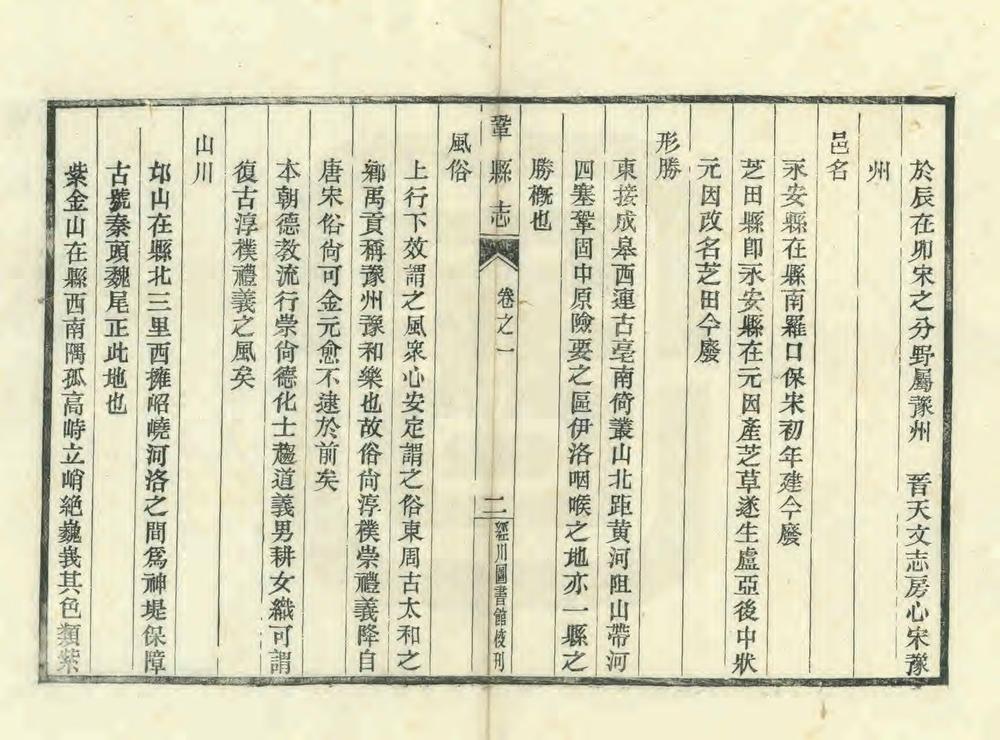 於辰在卯宋之分野屬豫州　晉天文志房心宋豫
州
邑名
永安縣在縣南羅口保宋初年建今廢
芝田縣卽永安縣在元因產芝草遂生盧亞後中狀
元因改名芝田今廢
形勝
東接成皋西連古亳南倚叢山北距黄河阻山帶河
四塞鞏固中原險要之區伊洛咽喉之地亦一縣之
勝槪也
鞏縣志　卷之一　二　經川圖書館校刊
風俗
上行下效謂之風衆心安定謂之俗東周古太和之
鄕禹貢稱豫州豫和樂也故俗尙淳樸崇禮義降自
唐宋俗尙可金元愈不逮於前矣
本朝德教流行崇尙德化士趨道義男耕女織可謂
復古淳樸禮義之風矣
山川
邙山在縣北三里西擁崤嶢河洛之間爲神堤保障
古號秦頭魏尾正此地也
紫金山在縣西南隅孤高峙立峭絶巍峩其色類紫